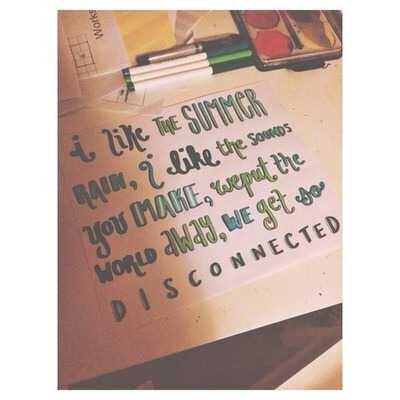 Works
i like THE SUMMER
RAIN, i like the SOUNDS
you MAKE, weput the
WORLD aWAY, WE get so
DISCONNECTED